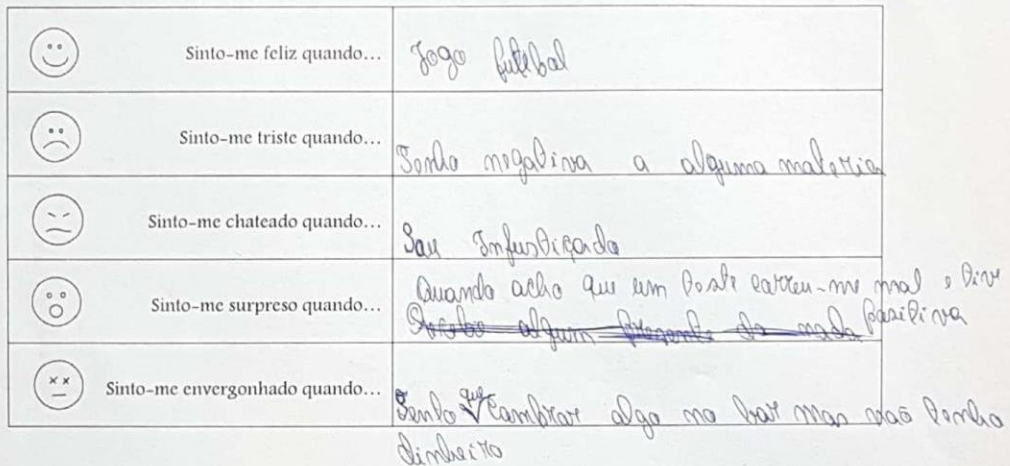 Sinto-me feliz quando... Jogo futebal
Sinto-me triste quando... Tenho negativa a alguma materia
Sinto-me chateado quando... Sou Injustiçado
Sinto-me surpreso quando... Quando acho que um teste correu-me mal e tive
Recebo algum presente do nada positiva
Sinto-me envergonhado quando... Tenho que comprar algo no bar mas não tenho
dinheiro